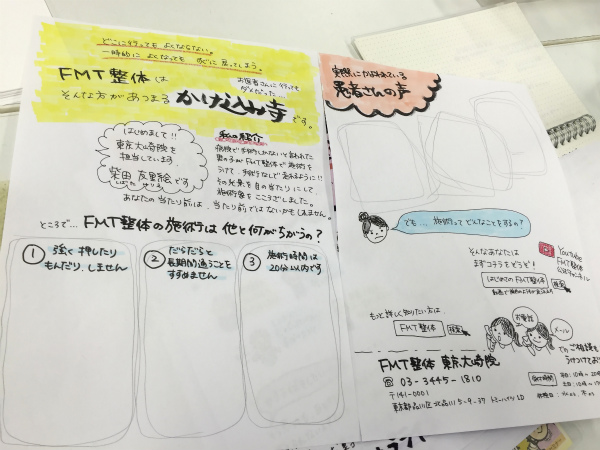 どこに行ってもよくならない。
一時的によくなってもすぐに戻ってしまう。
FMT整体は
お医者さんに行っても
ダメだった…
そんな方があつまる かけ込み寺です。
はじめまして!!
東京大崎院を
担当しています
柴田 友里絵です
しばた ゆりえ
私の紹介
病院で手術しかないと言われた
男の子がFMT整体で施術を
うけて、手術なしで走れるように!!
その光景を目の当たりにして
施術家をこころざしました。
あなたの当たり前は、当たり前ではないかもしれません。
ところで… FMT整体の施術は他と何がちがうの?
① 強く押したり
もんだりしません
② だらだらと
長期間通うことを
すすめません
③ 施術時間は
20分以内です
実際に
患者さんの声
でも… 施術ってどんなことをするの?
そんなあなたは
まずコチラをどうぞ!
YouTube
FMT整体
公式チャンネル
はじめてのFMT整体 検索
もっと詳しく知りたい方は
FMT整体 検索
お電話
メール
でのご相談も
うけつけており
FMT整体 東京大崎院
☎ 03-3445-1810
〒141-0001
東京都品川区北品川5-9-37
受付時間